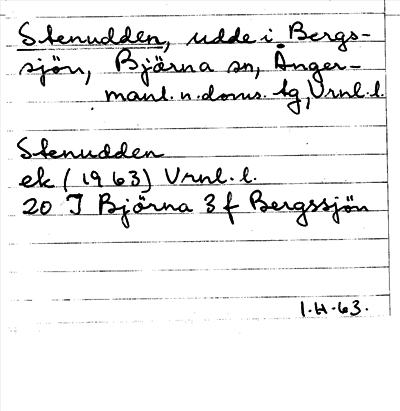 Stenudden, udde i Bergs-
sjön, Björna sn, Ånger-
manl. n. doms. tg, Vrnl. l.
Stenudden
ek (1963) Vrnl. l.
20 I Björna 3 f Bergssjön
1.H.63.